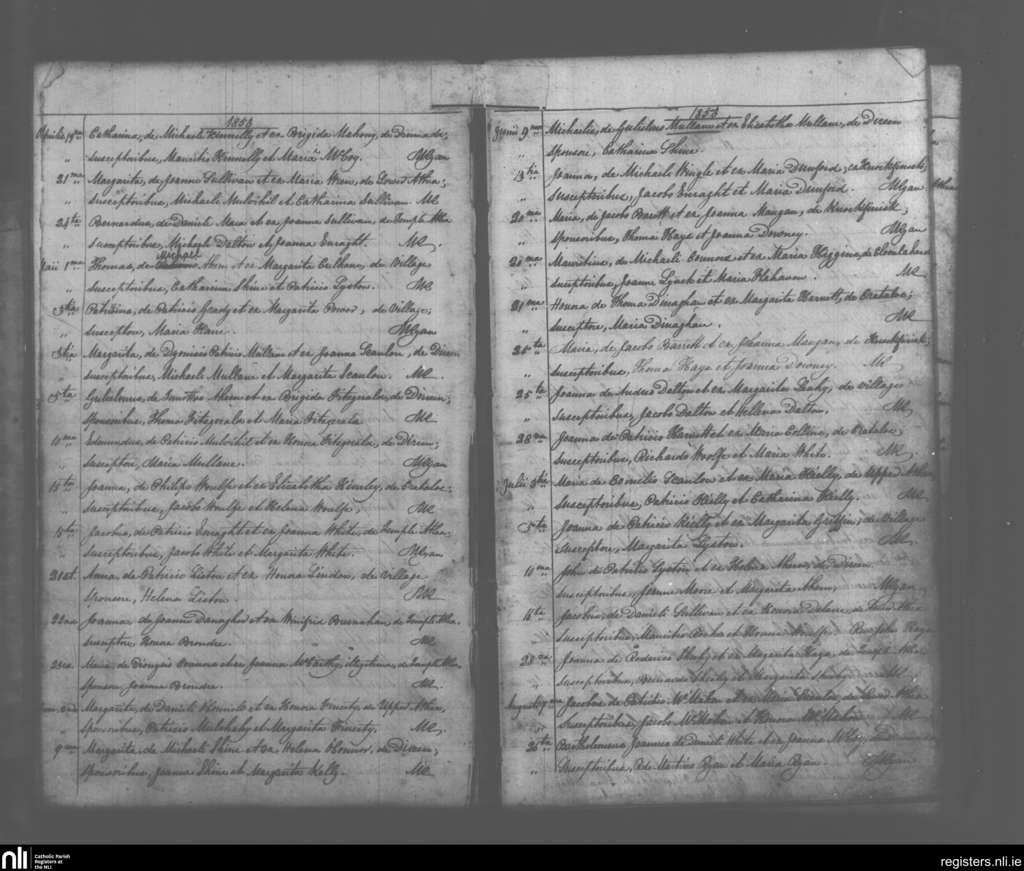 1853
Aprilis 19na Catharina, de Michaeli Kennelly et ex Brigida Mahony, de
" susceptoribus, Mauritio Kennelly et Maria McCoy. MRyan
21ma Margarita, de Joanne Sullivan et ex Maria Wren, de Lower Athea;
" susceptoribus, Michaele Mulvihil et Catharina Sullivan. MR
24ta Bernardus, de Daniele et ex Joanna Sullivan, de Temple Athea
" susceptoribus, Michaele Dalton et Joanna Enraght. MR.
Maii 1ma Thomas, de Michael Ahern et ex Margarita Culhane, de Village
" susceptoribus, Catharina Shine et Patricio Lyston. MR
3tia Patritius, de Patricio Grady et ex Margarita Power, de Village;
" susceptore, Maria Kane. MRyan
Margarita, de Dyonicio Patricio Mullane et ex Joanna Scanlon, de Direen
" susceptoribus, Michaele Mullane et Margarita Scanlon. MR.
5ta Gulielmus, de Timotheo Ahern et ex Brigida Fitzgerald, de Direen;
" sponsoribus, Thoma Fitzgerald et Maria Fitzgerald MR
10ma Edmundus, de Patricio Mulvihil et ex Honora Fitzgerald, de Direen;
" susceptore, Maria Mullane. MRyan
Joanna, de Philipo Woulfe et ex Elizabetha Kinely, de Cratoloe;
" susceptoribus, Jacobo Woulfe et Helena Woulfe, MR
15ta Jacobus, de Patricio Enraght et ex Joanna White, de Temple Athea:
" susceptoribus, Jacobo White et Margarita White. MRyan
21st. Anna, de Patricio Liston et ex Honora Lindon, de Village
sponsore, Helena Liston. MR
22da Joanna, de Joanne Danagher et ex Winifrid Bresnahan, de Temple Athea.
susceptore, Honora Brondre. MR
Maria, de Dionysio et ex Joanna McCarthy, de Temple Athea
sponsore Joanna Brondre. MR.
Margarita, de Daniele et ex Honora, de Upper Athea,
sponsoribus, Patricio Mulchahy et Margarita. MR,
9na Margarita, de Michaele Shine et ex Helena Connor, de Direen;
sponsoribus, Joanna Shine et Margarita Kelly. MR
1853
Junii 9na Michaelis, de Gulielmo Mullane et ex Elizabetha Mullane, de Direen
" sponsore, Catharina Shine.
Joanna, de Michaele Wingle et ex Maria Dunford, ex Knockfinisk,
" susceptoribus, Jacobo Enraght et Maria Dunford. MRyan
20ma Maria, de Jacobo Barett et ex Joanna Mangan, de Knockfinisk;
" sponsoribus, Thoma Hayes et Joanna Downey. MRyan
20ma Mauritius, de Michaele et ex Maria Higgins, de
" susceptoribus, Joanne Lynch et Maria Flahavan. MR
21ma Honora de Thoma Dinaghan et ex Margarita Harnett, de Cratoloe;
" susceptore, Maria Dinaghan. MR
25ta Maria, de Jacobo Barrett et ex Johanna Mangan, de Knockfinisk;
susceptoribus, Thoma Haye et Joanna Downey. MR
25ta Joanna de Andreo Dalton et ex Margarita Leahy, de village
" susceptoribus, Jacobo Dalton et Hellena Dalton. MR,
28va Joanna de Patricio Harnett et ex Maria Collins, de Cratoloe;
susceptoribus, Richardo Woolfe et Maria White. MR,
Julii 3tia Maria de Cornelio Scanlon et ex Maria Kielly, de upper Athea
" susceptoribus, Patricio Kielly et Catherina Kielly. MR
5ta Joanna de Patricio Kielly et ex Margarita Griffin, de Village
susceptore, Margarita Lyston. MR.
10ma John de Patritio Lyston et ex Helena Ahern, de Direen
susceptoribus, Joanne et Margarita Ahern, MRyan
Jacobus, de Daniele Sullivan et ex Honora
susceptoribus, Mauritio et Honora Woulfe.
Joanna de Roderico Sheehy et ex Margarita Haye, de Temple Athea
" susceptoribus, et Margarita Sheehy. MR
Augusti 9na Jacobus de Patritio McMahon et ex Maria
" susceptoribus, Jacobo McMahon et Honora McMahon. MR
26ta Bartholemeus Joannes de Daniele White et ex Joanna McCoy,
" susceptoribus, Ryan et Maria Ryan. MRyan
nli
Catholic Parish
Registers at
the NLI
registers.nli.ie